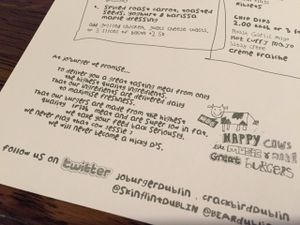 spiced roast carrot, toasted
seeds, yoghurt & harissa
marie dressing
add grilled chicken,
or 2 slices of bacon +2.50
CHIP DIPS
2.00 each or 3 for
Roast Garlic Mayo
Hot Curry Mayo
creme fraiche
At joburger we promise...
To deliver you a great tasting meal from only
the highest quality ingredients.
That our ingredients are delivered daily
to maximise freshness.
That our burgers are made from the highest
quality irish meat and are super low in fat.
we take your feed back seriously.
we never play that cow Jessie J
we will never become a Micky D's.
HAPPY COWS
Great burgers
follow us on twitter joburgerDublin, crackbirdDublin
@skinflintDUBLIN @BEARdublin